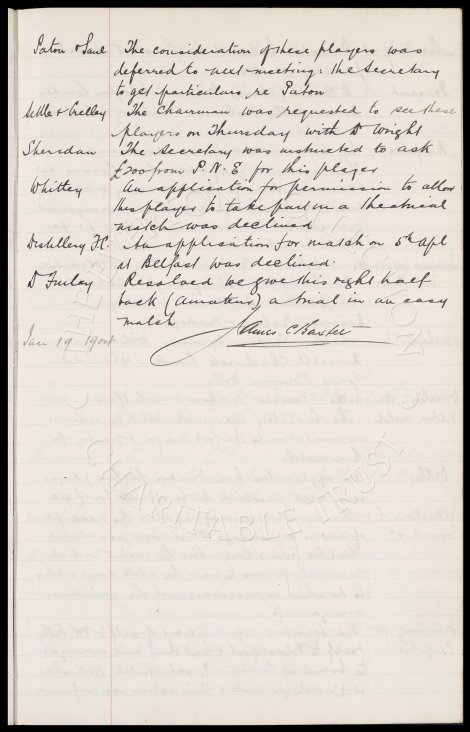 Paton & Saul The consideration of these players was
deferred to next meeting: the Secretary
to get particulars re Paton
Settle & Crelley The Chairman was requested to see these
players on Thursday with Dr Wright
Sheridan The Secretary was instructed to ask
£200 from P.N.E for this player
Whitley An application for permission to allow
this player to take part in a theatrical
match was declined
Distillery F.C. An application for match on 5th Apl
at Belfast was declined.
D Furley Resolved we give this right half
back (amateur) a trial in an easy
match
James C Baxter
Jan 19 1904
CHARITABLE TRUST